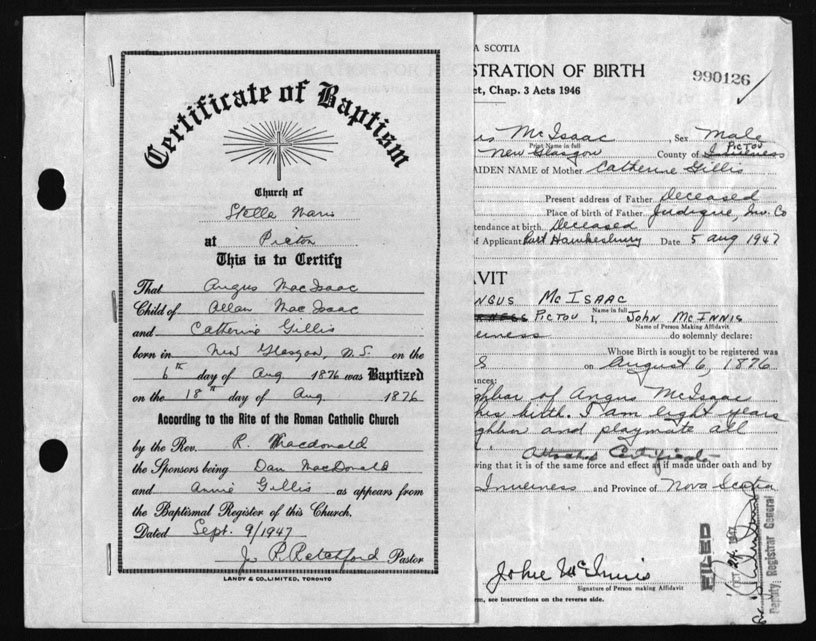 Certificate of Baptism
Church of
Stella Maris
at Pictou
This is to Certify
That Angus MacIsaac
Child of Allan MacIsaac
and Catherine Gillis
born in New Glasgow, N.S. on the
6th day of Aug 1876 was Baptized
on the 18th day of Aug. 1876
According to the Rite of the Roman Catholic Church
by the Rev. R. Macdonald
the Sponsors being Dan MacDonald
and Annie Gillis as appears from
the Baptismal Register of this Church.
Dated Sept. 9/1947
J. P. Ratchford Pastor
LANDY & CO. LIMITED, TORONTO
A SCOTIA
STRATION OF BIRTH
990126
ct, Chap. 3 Acts 1946
us McIsaac, Sex Male
Print Name in full
Pictou
New Glasgow County of Inverness
AIDEN NAME of Mother Catherine Gillis
Present address of Father Deceased
Place of birth of Father Judique, Inv. Co
tendance at birth Deceased
of Applicant Port Hawkesbury Date 5 Aug 1947
AVIT
NGUS McISAAC
Name in full
PICTOU I, JOHN McINNIS
Name of Person Making Affidavit
erness do solemnly declare:
Whose Birth is sought to be registered was
on August 6, 1876
ances:
ghbor of Angus McIsaac
his birth. I am eight years
ghbor and playmate all
Attached Certificate
wing that it is of the same force and effect as if made under oath and by
Inverness and Province of Nova Scotia
FILED
Deputy Registrar General
John McInnis
Signature of Person making Affidavit
rm, see instructions on the reverse side.